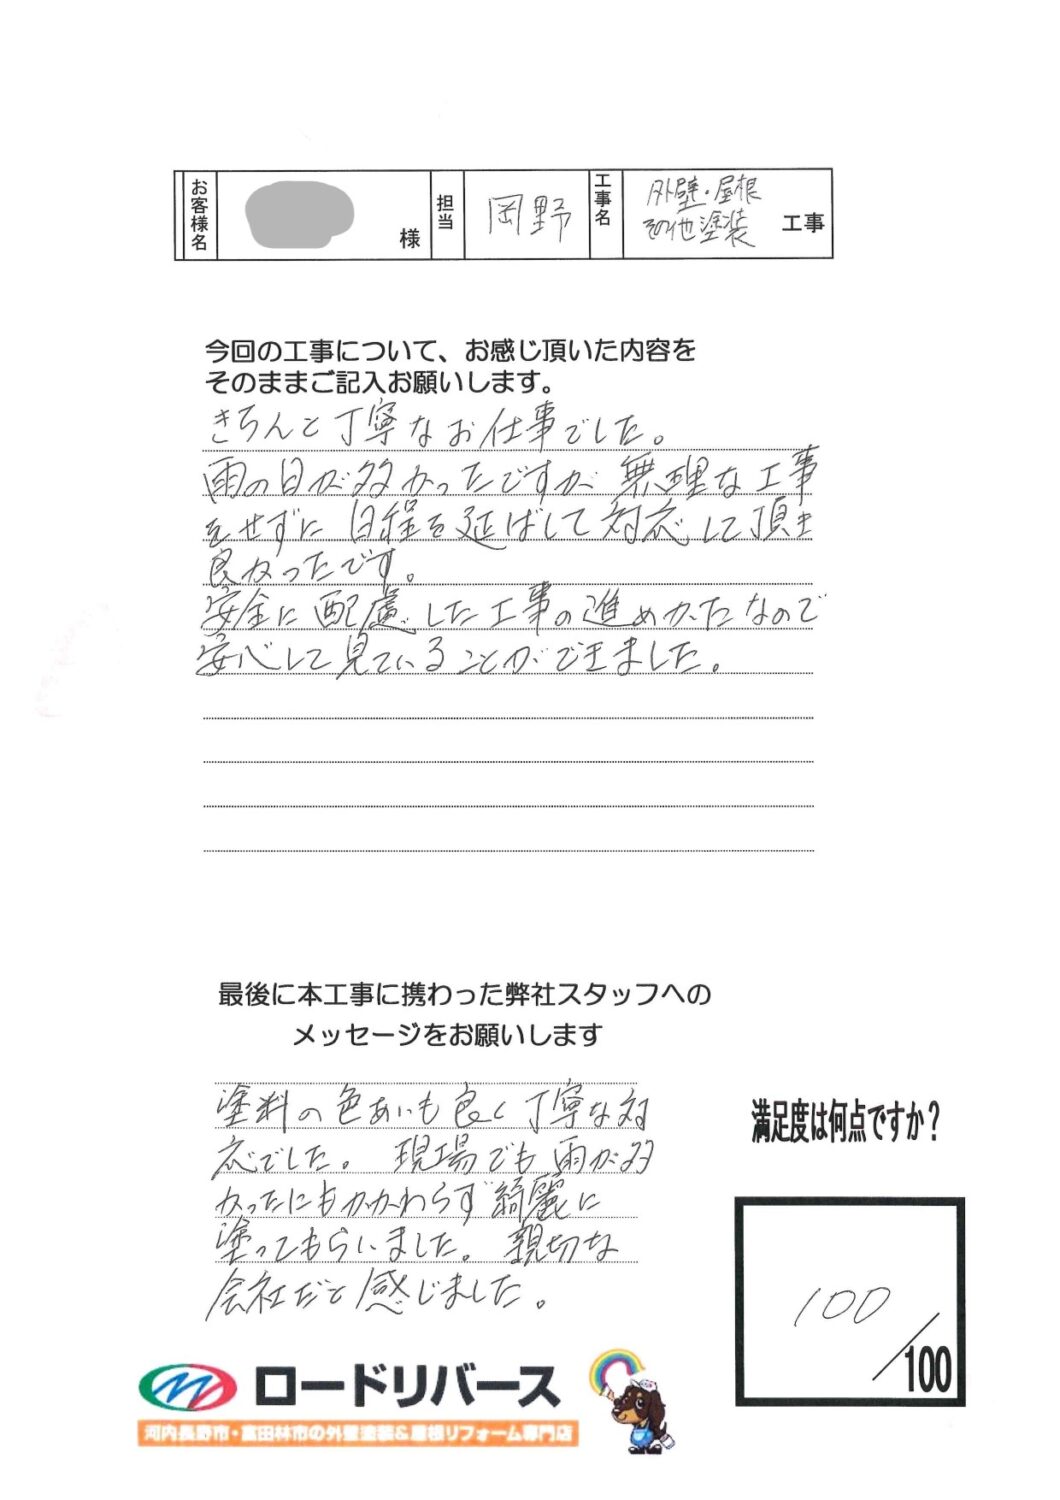 お客様名 様 担当 岡野 工事名 外壁・屋根 その他塗装 工事
今回の工事について、お感じ頂いた内容を
そのままご記入お願いします。
きちんと丁寧なお仕事でした。
雨の日が多かったですが無理な工事
をせずに日程を延ばして対応して頂き
良かったです。
安全に配慮した工事の進めかたなので
安心して見ていることができました。
最後に本工事に携わった弊社スタッフへの
メッセージをお願いします
塗料の色あいも良く丁寧な対
応でした。現場でも雨が多
かったにもかかわらず綺麗に
塗ってもらいました。親切な
会社だと感じました。
満足度は何点ですか？
100／100
ロードリバース
河内長野市・富田林市の外壁塗装&屋根リフォーム専門店